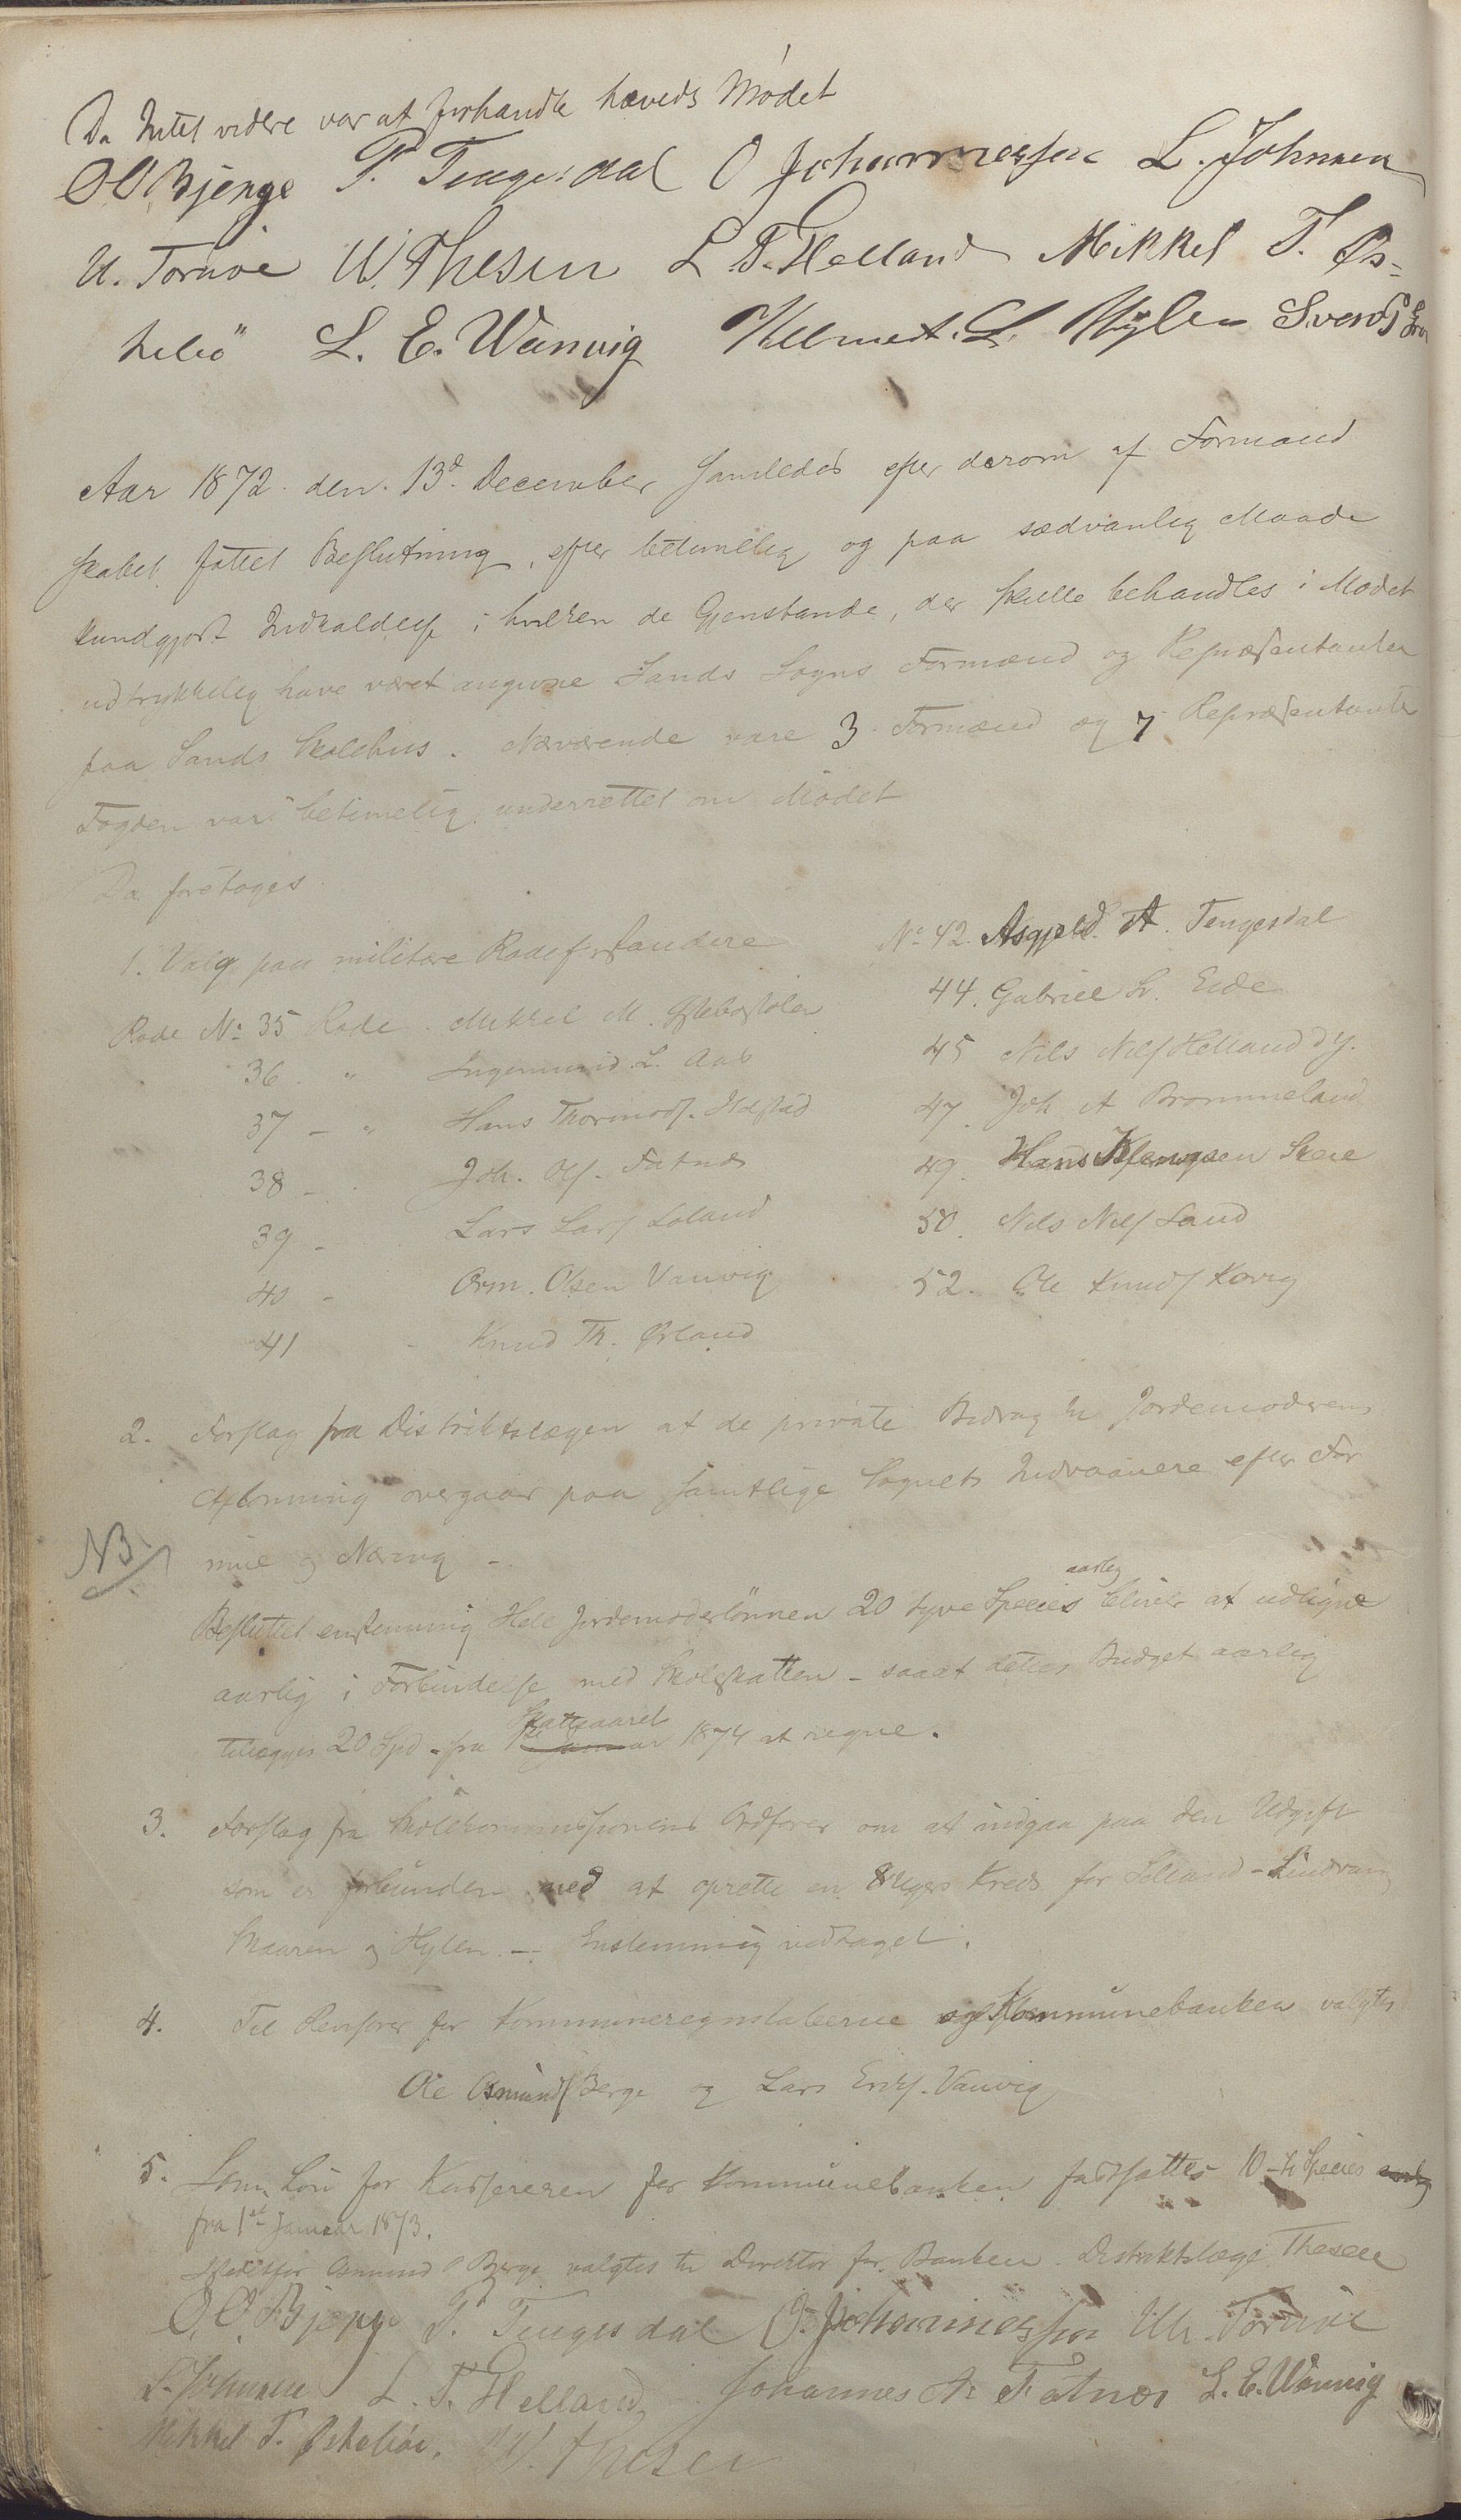 Da Intet videre var at forhandle hæveds Mødet
O O Bjerge P. Tengesdal O Johannessen L. Johnsen
U. Tornøe W. Thesen L. T. Helland Mikkel T. Øs-
hebø L. E. Wanvig L. Hylen
Aar 1872 den 13d December samledes efter derom af Formand
skabet fattet Beslutning, efter betimelig og paa sædvanlig Maade
kundgjort Indkaldelse i hvilken de Gjenstande, der skulle behandles i Mødet
udtrykkelig have været angivne Sands Sogns Formænd og Repræsentanter
paa Sands Skolehus. Nærværende vare 3 Formænd og 7 Repræsentanter
Fogden var betimelig underrettet om Mødet
Da foretoges
1. Valg paa militære Rodeforstandere
Rode No 35 Rode Mikkel M.
36 " Ingemund L. Aab
37 - " Hans Thormods.
38 - Joh. Ols. Fatnes
39 - Lars Lars Løland
40 - Orm. Olsen Vanvig
41 Knud Th. Ørland
No 42. Asgjeld A. Tengesdal
44. Gabriel Eide
45 Nils Nils Helland dy.
47. Joh A Brommeland
49. Hans Skeie
50. Nils Nils Sand
52. Ole Knuds Kovig
2. Forslag fra Distriktslægen at de private Bidrag til Jordemoderens
Aflønning overgaar paa samtlige Sognets Indvaanere efter For
mue og Næring -
NB.
aarlig
Besluttet enstemmig Hele Jordemoderlönnen 20 tyve Species bliver at udligne
aarlig i Forbindelse med Skoleskatten - saaat dettes Budget aarlig
Skatteaaret
tillægges 20 Spd - fra 1ste Januar 1874 at regne.
3. Forslag fra Skolekommissionens Ordfører om at indgaa paa den Udgift
som er forbunden med at oprette en 8 Ugers Kreds for Lolland - Lindvang
Skaaren og Hylen. - Enstemmig vedtaget.
4. Til Revisorer for Kommuneregnskaberne og Kommunebanken valgtes
Ole Asmunds Berge og Lars Eriks. Vanvig
5. Som Løn for Kassereren for Kommunebanken fastsattes 10 - ti Species
fra 1ste Januar 1873.
Asmund O Berge valgtes til Direktør for Banken. Distriktslæge Thesen
O. O. Bjerge P. Tengesdal O. Johannessen U. Tornøe
L. Johnsen L. T. Helland Johannes A Fatnes L. E. Wanvig
Mikkel T. Øshebø. W. Thesen